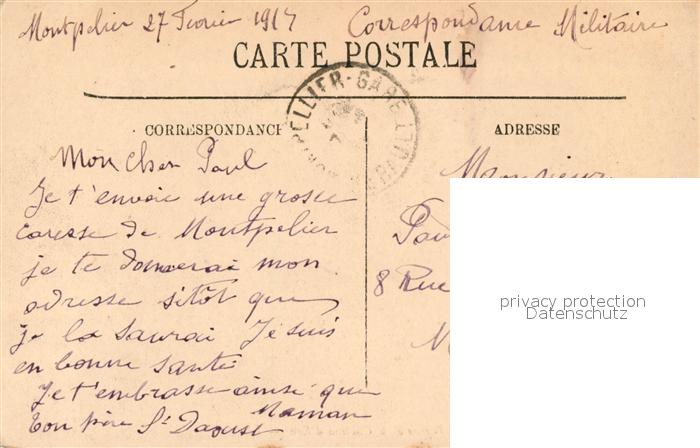 Montpelier 27 Fevrier 1917 Correspondance Militaire
CARTE POSTALE
ELLIER-GARE
HERAULT
CORRESPONDANCE
ADRESSE
Mon cher Paul
Je t'envoie une grosse
caresse de Montpelier
je te donnerai mon
adresse sitôt que
je la saurai Je suis
en bonne santé
Je t'embrasse ainsi que
ton père Maman
Monsieur
8 Rue
privacy protection
Datenschutz